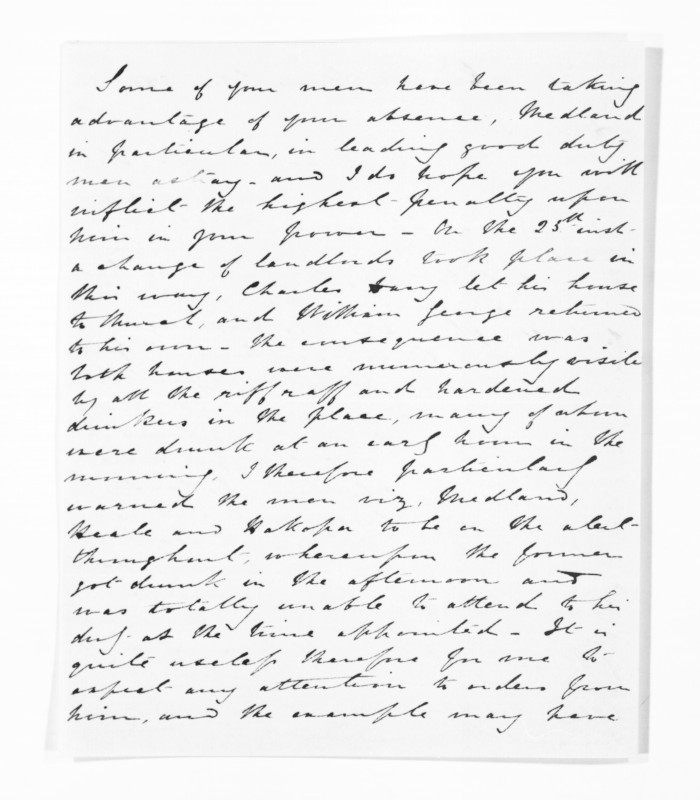 Some of your men have been taking
advantage of your absence, Medland
in particular, in leading good duty
men astray - and I do hope you will
inflict the highest penalty upon
him in your power - On the 25th inst.
a change of landlords took place in
this way, Charles let his house
to, and William George returned
to his own - the consequence was
both houses were numerously visite
by all the riff raff and hardened
drinkers in the place, many of whom
were drunk at an early hour in the
morning. I therefore particularly
warned the men viz, Medland,
Heale and Hakopa to be on the alert
throughout, whereupon the former
got drunk in the afternoon and
was totally unable to attend to his
duty at the time appointed - It is
quite useless therefore for me to
expect any attention to orders from
him, and the example may have